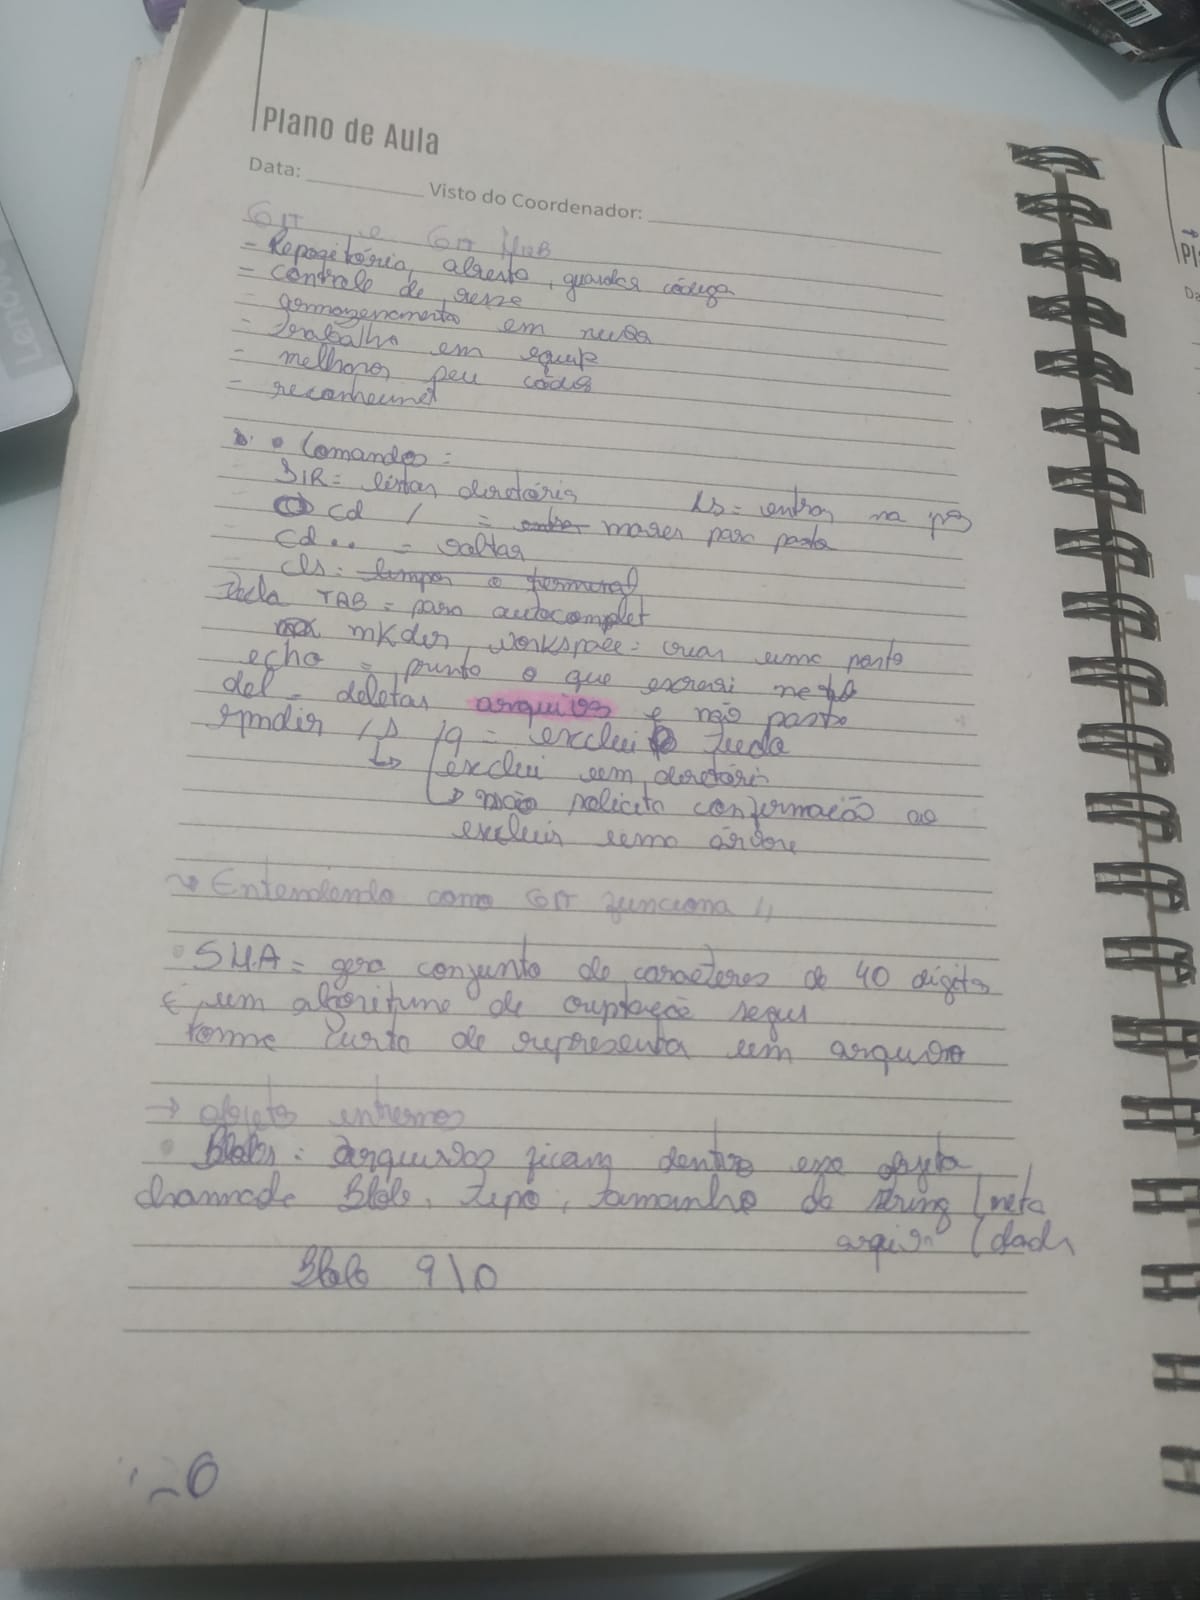 Plano de Aula
Data: Visto do Coordenador:
GIT e GIT HUB
- Repogitório, aberto, guardar códigos
- controle de
- armazenamento em nuvem
- trabalho em equip
- melhorar seu código
- reconheciment
• Comandos =
DIR = listar diretório LS = entrar na
cd / = mover para pasta
cd.. = voltar
cls: limpar o terminal
Tecla TAB = para autocomplet
mkdir, workspace = criar uma pasta
echo = printa o que escrevi
del = deletar arquivos e não pasta
rmdir /S /q = exclui tudo
↳ exclui um diretóri
↳ não solicita confirmação ao
excluir uma árvore
→ Entendendo como GIT funciona
• SHA = gera conjunto de caracteres de 40 digitos
É um algoritimo de criptação segur
forma curta de representa um arquivo
→ objetos internos
• Blobs: arquivos ficam dentro esse objeto
chamado Blob, tipo, tamanho da string (meta
arquivo (dads
Blob 9\0